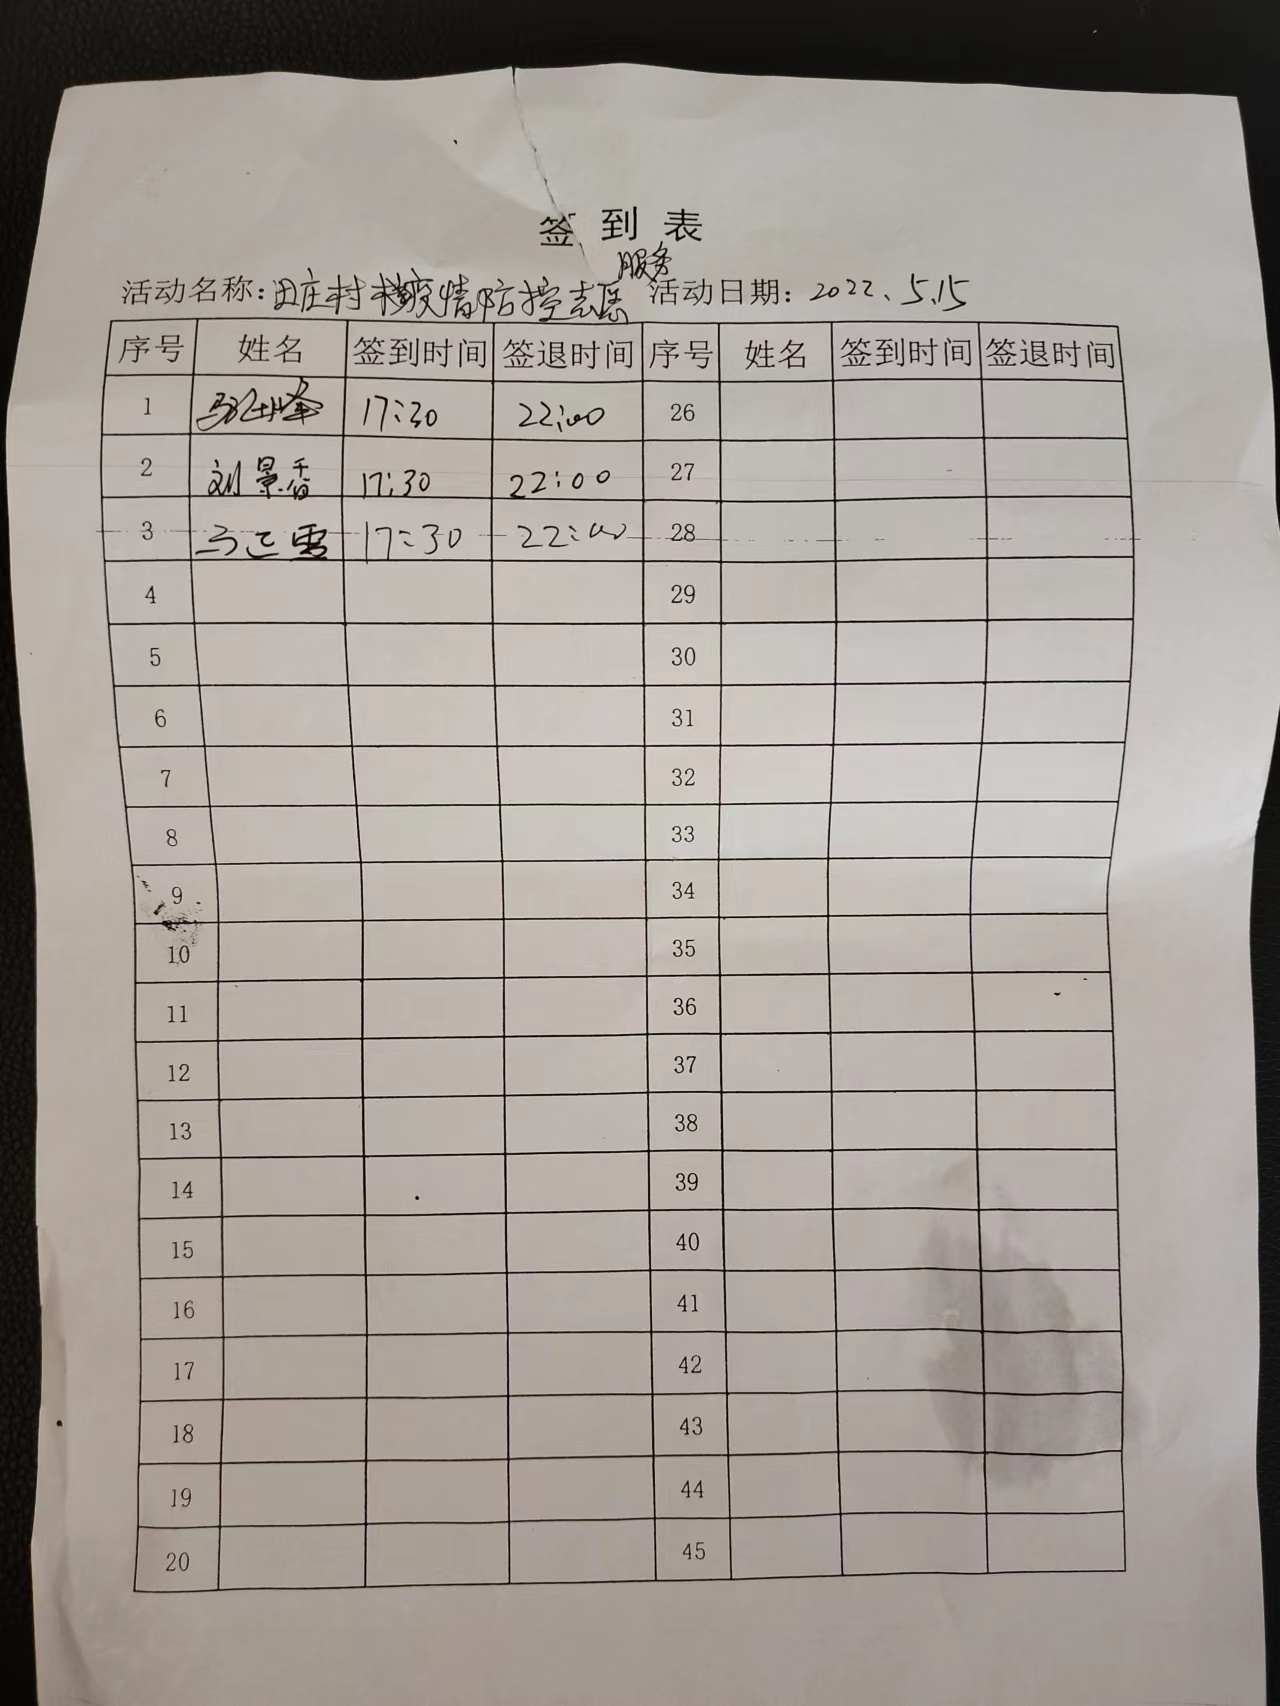 签到表
服务
活动名称：田庄村疫情防控志愿 活动日期：2022.5.15
序号 姓名 签到时间 签退时间 序号 姓名 签到时间 签退时间
1 17:30 22:00 26
2 刘景香 17:30 22:00 27
3 马正雪 17:30 22:00 28
4 29
5 30
6 31
7 32
8 33
9 34
10 35
11 36
12 37
13 38
14 39
15 40
16 41
17 42
18 43
19 44
20 45